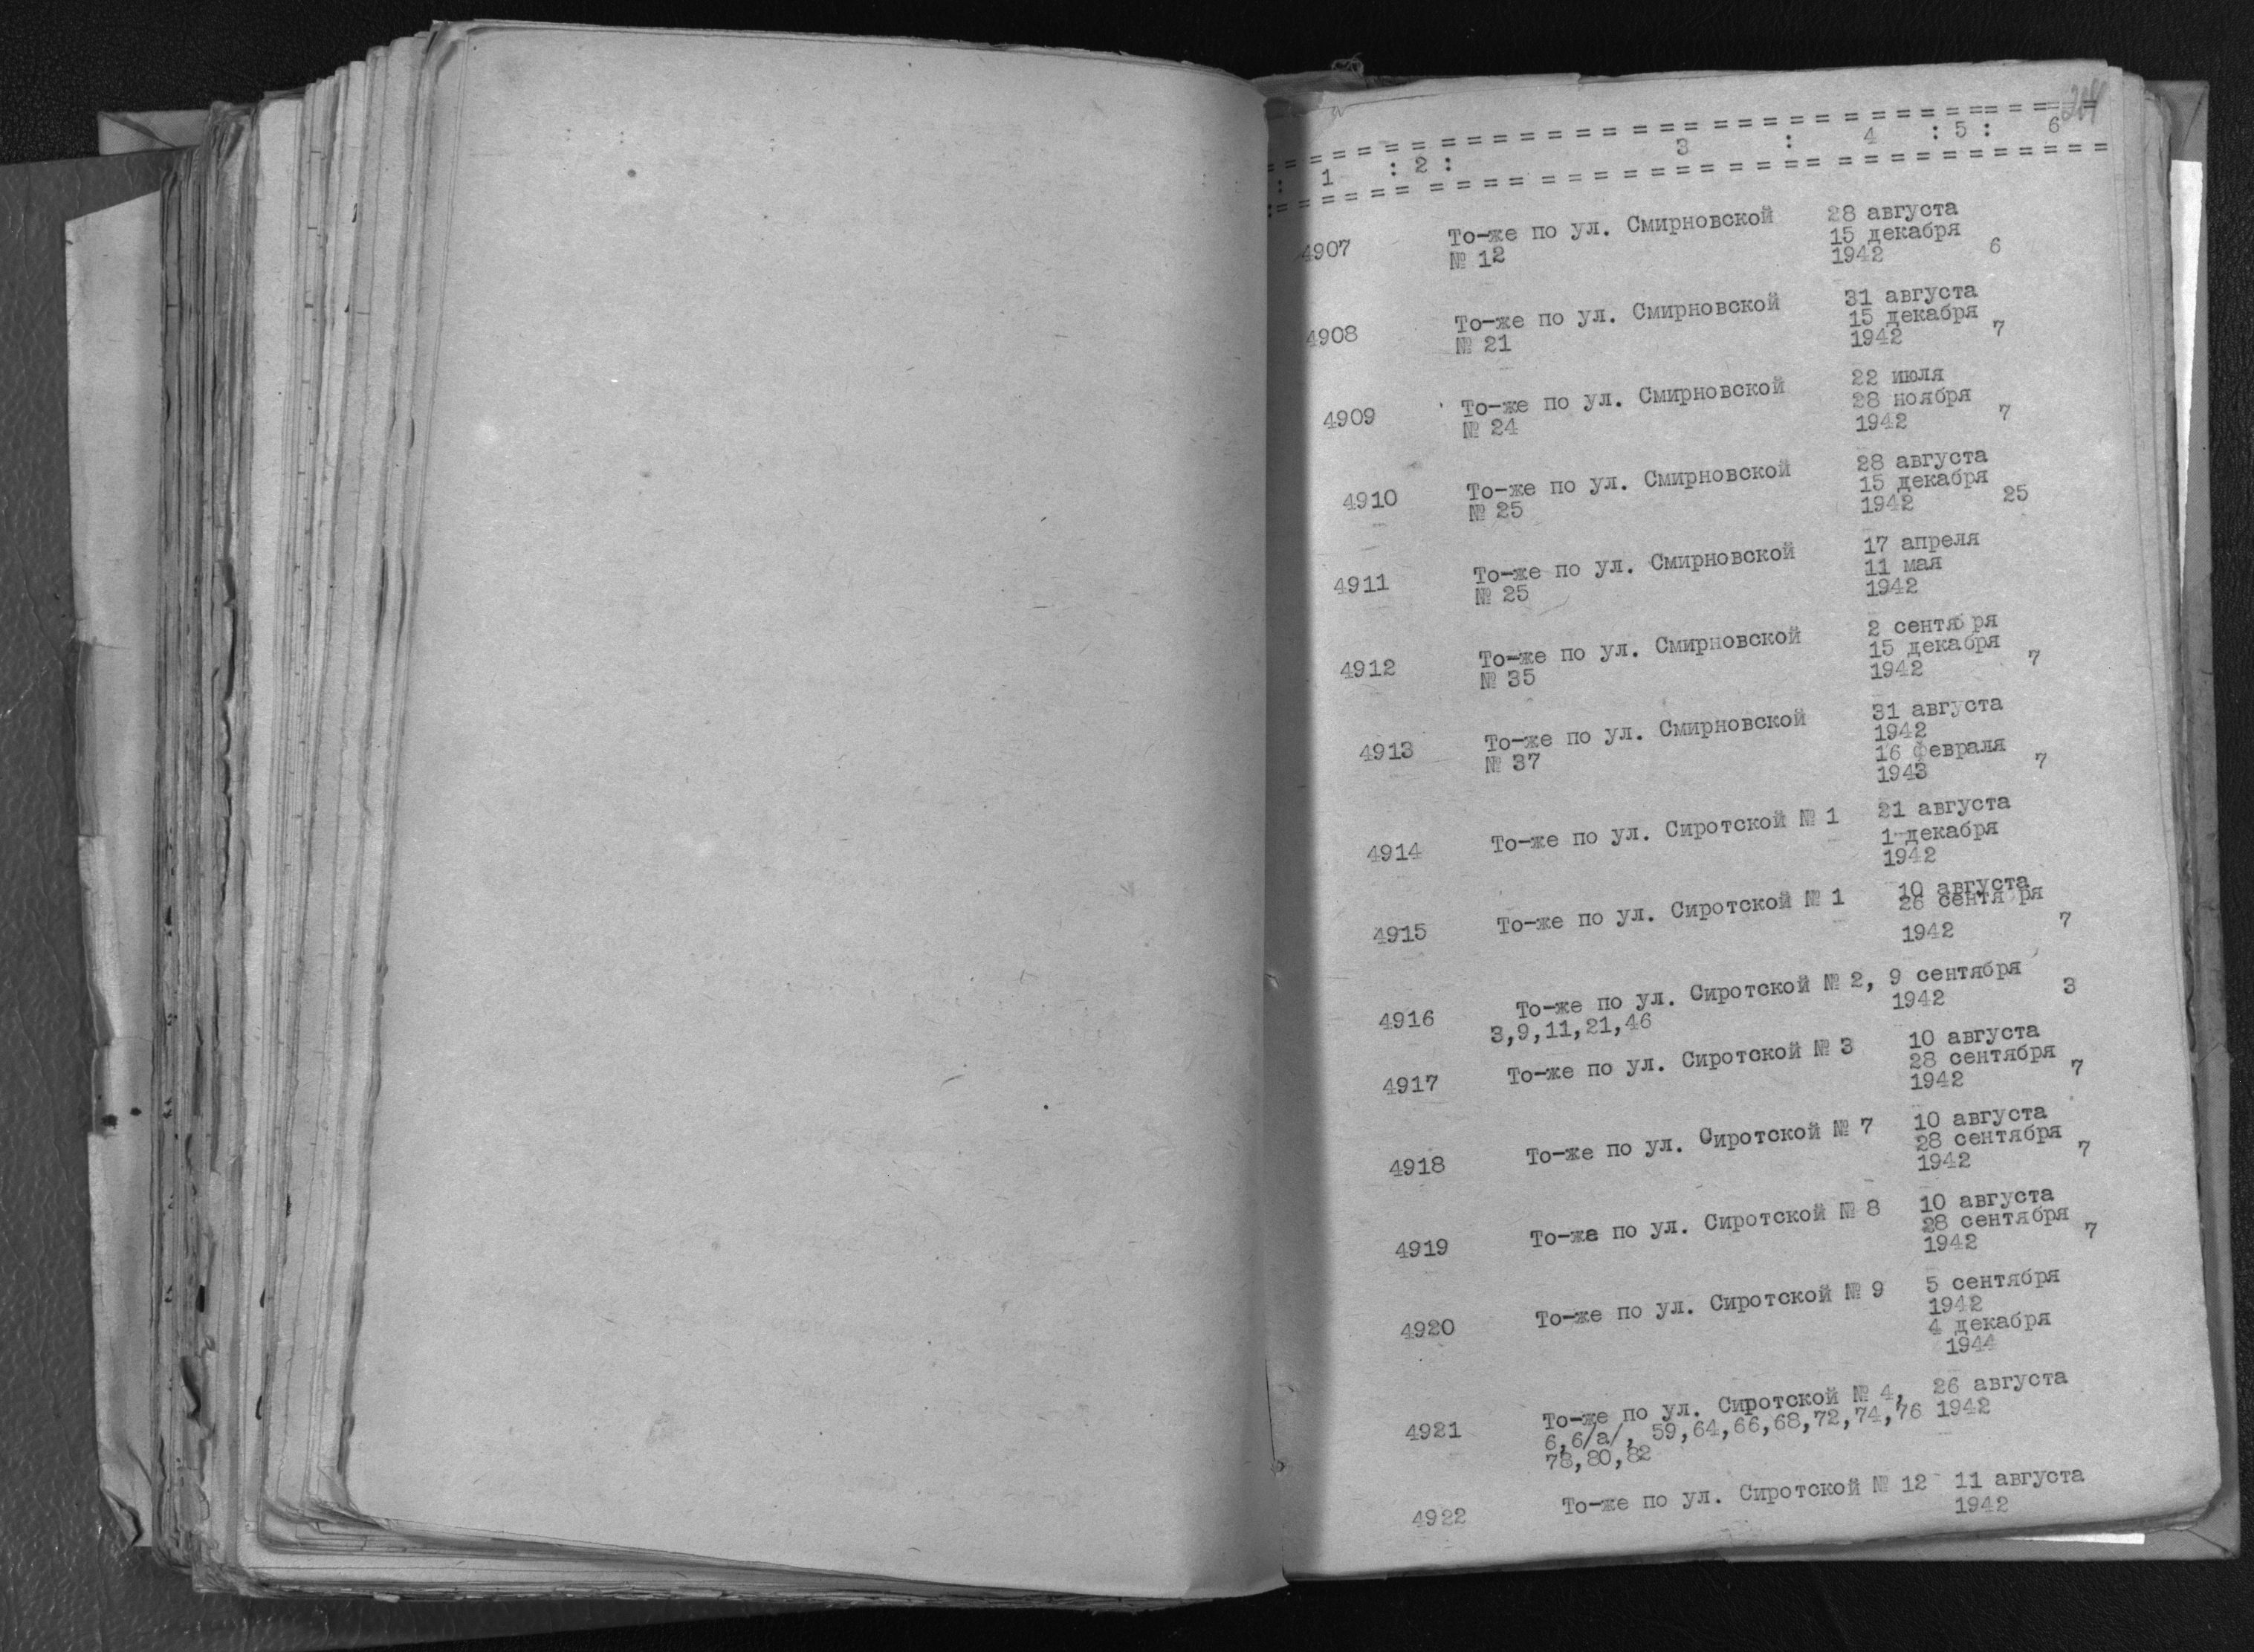 204
: 1 : 2 : 3 : 4 : 5 : 6
4907 То-же по ул. Смирновской 28 августа
№ 12 15 декабря
1942 6
4908 То-же по ул. Смирновской 31 августа
№ 21 15 декабря
1942 7
4909 То-же по ул. Смирновской 22 июля
№ 24 28 ноября
1942 7
4910 То-же по ул. Смирновской 28 августа
№ 25 15 декабря
1942 25
4911 То-же по ул. Смирновской 17 апреля
№ 25 11 мая
1942
4912 То-же по ул. Смирновской 2 сентября
№ 35 15 декабря
1942 7
4913 То-же по ул. Смирновской 31 августа
№ 37 1942
16 февраля
1943 7
4914 То-же по ул. Сиротской № 1 21 августа
1 декабря
1942
4915 То-же по ул. Сиротской № 1 10 августа
26 сентября
1942 7
4916 То-же по ул. Сиротской № 2, 9 сентября
3,9,11,21,46 1942 3
4917 То-же по ул. Сиротской № 3 10 августа
28 сентября
1942 7
4918 То-же по ул. Сиротской № 7 10 августа
28 сентября
1942 7
4919 То-жа по ул. Сиротской № 8 10 августа
28 сентября
1942 7
4920 То-же по ул. Сиротской № 9 5 сентября
1942
4 декабря
1944
4921 То-же по ул. Сиротской № 4, 26 августа
6,6/а/, 59,64,66,68,72,74,76 1942
78,80,82
4922 То-же по ул. Сиротской № 12 11 августа
1942